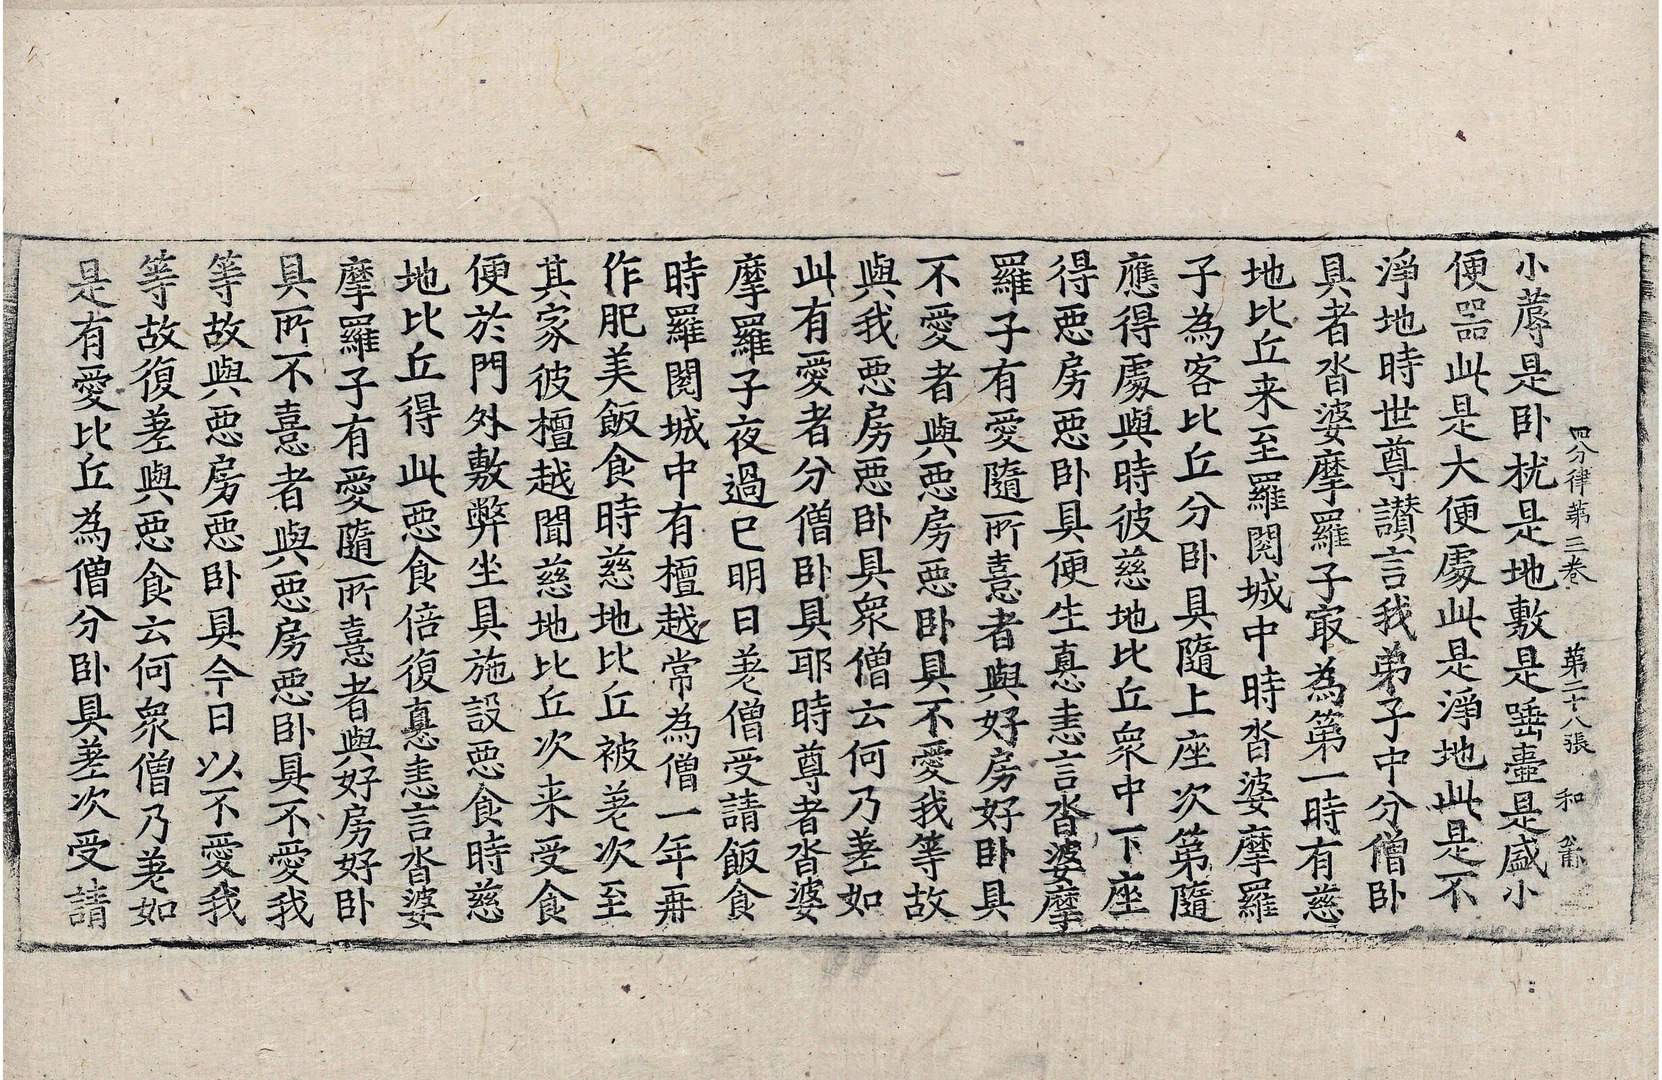 四分律第三卷 第二十八張 和
小蓐是卧枕是地敷是唾壷是盛小
便器此是大便處此是淨地此是不
淨地時世尊讃言我弟子中分僧卧
具者沓婆摩羅子㝡為第一時有慈
地比丘来至羅閱城中時沓婆摩羅
子為客比丘分卧具隨上座次第隨
應得處與時彼慈地比丘衆中下座
得惡房惡卧具便生恚恚言沓婆摩
羅子有愛隨所憙者與好房好卧具
不愛者與惡房惡卧具不愛我等故
與我惡房惡卧具衆僧云何乃差如
此有愛者分僧卧具耶時尊者沓婆
摩羅子夜過已明日差僧受請飯食
時羅閱城中有檀越常為僧一年再
作肥美飯食時慈地比丘被差次至
其家彼檀越聞慈地比丘次来受食
便於門外敷弊坐具施設惡食時慈
地比丘得此惡食倍復瞋恚言沓婆
摩羅子有愛隨所憙者與好房好卧
具所不憙者與惡房惡卧具不愛我
等故與惡房惡卧具今日以不愛我
等故復差與惡食云何衆僧乃差如
是有愛比丘為僧分卧具差次受請